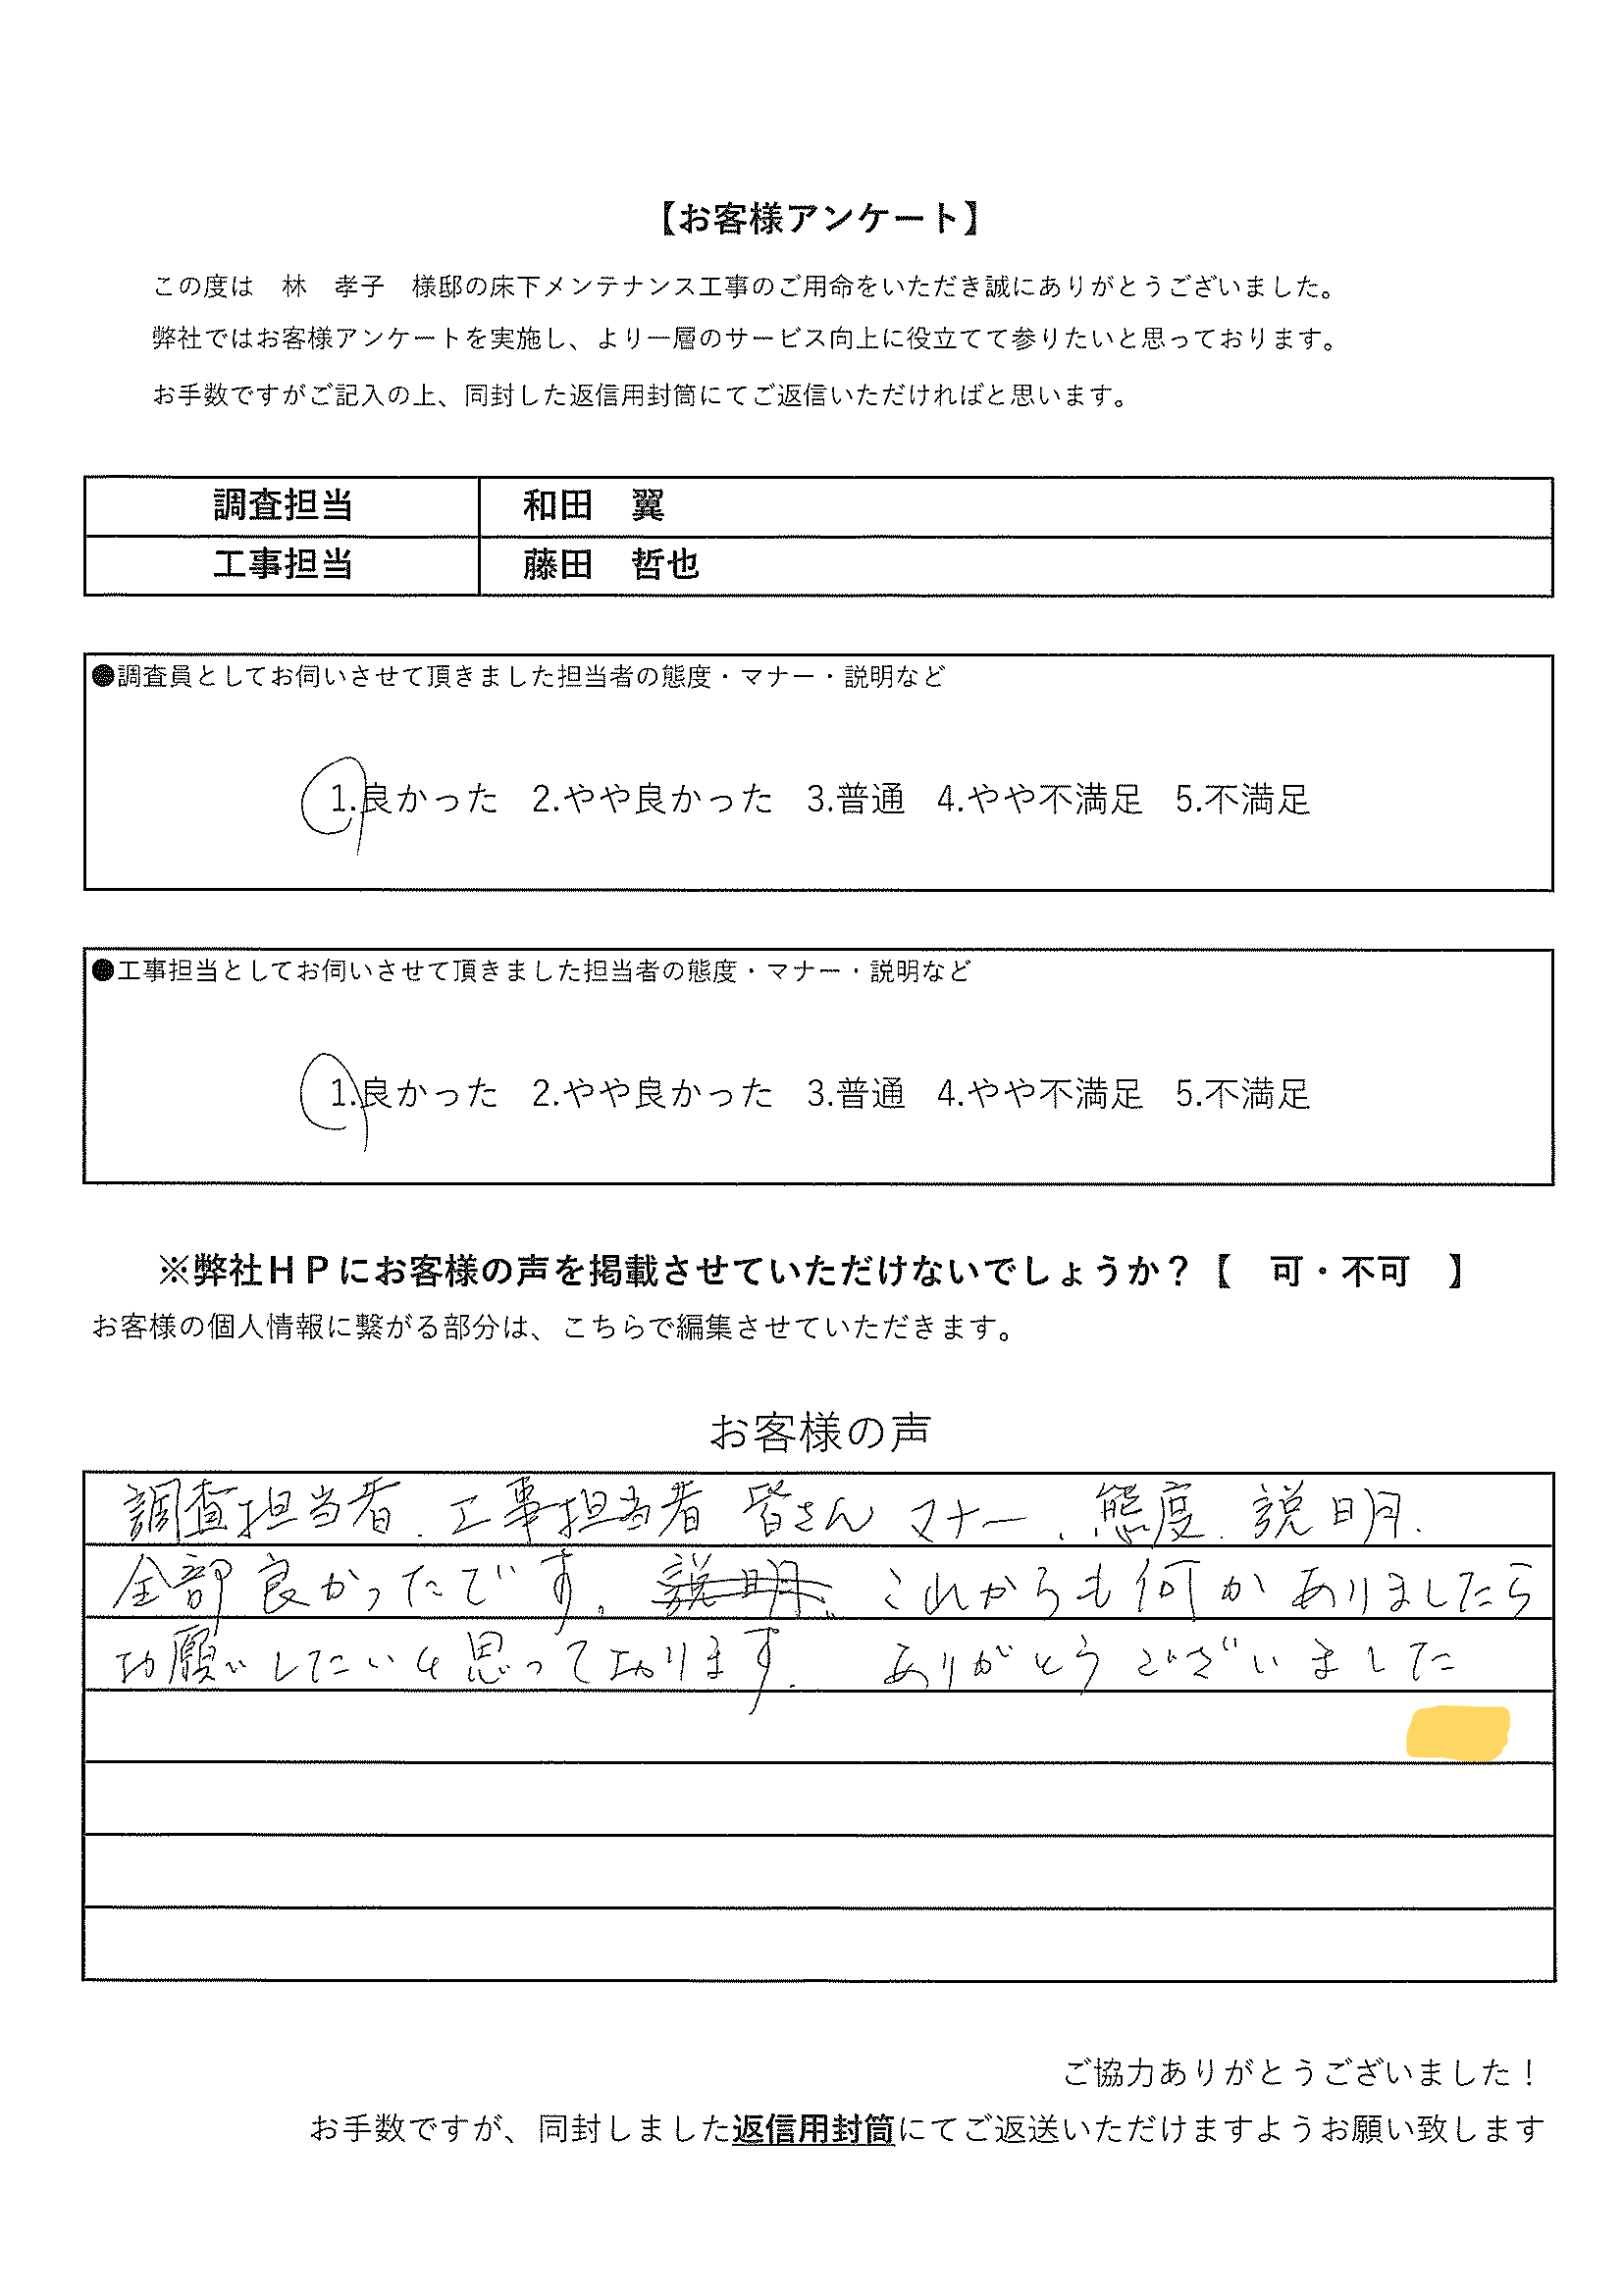 【お客様アンケート】
この度は　林　孝子　様邸の床下メンテナンス工事のご用命をいただき誠にありがとうございました。
弊社ではお客様アンケートを実施し、より一層のサービス向上に役立てて参りたいと思っております。
お手数ですがご記入の上、同封した返信用封筒にてご返信いただければと思います。
調査担当　和田　翼
工事担当　藤田　哲也
●調査員としてお伺いさせて頂きました担当者の態度・マナー・説明など
1.良かった　2.やや良かった　3.普通　4.やや不満足　5.不満足
●工事担当としてお伺いさせて頂きました担当者の態度・マナー・説明など
1.良かった　2.やや良かった　3.普通　4.やや不満足　5.不満足
※弊社ＨＰにお客様の声を掲載させていただけないでしょうか？【　可・不可　】
お客様の個人情報に繋がる部分は、こちらで編集させていただきます。
お客様の声
調査担当者、工事担当者 皆さん マナー、態度、説明、
全部良かったです。説明、これからも何かありましたら
お願いしたいと思っております。ありがとうございました
ご協力ありがとうございました！
お手数ですが、同封しました返信用封筒にてご返送いただけますようお願い致します